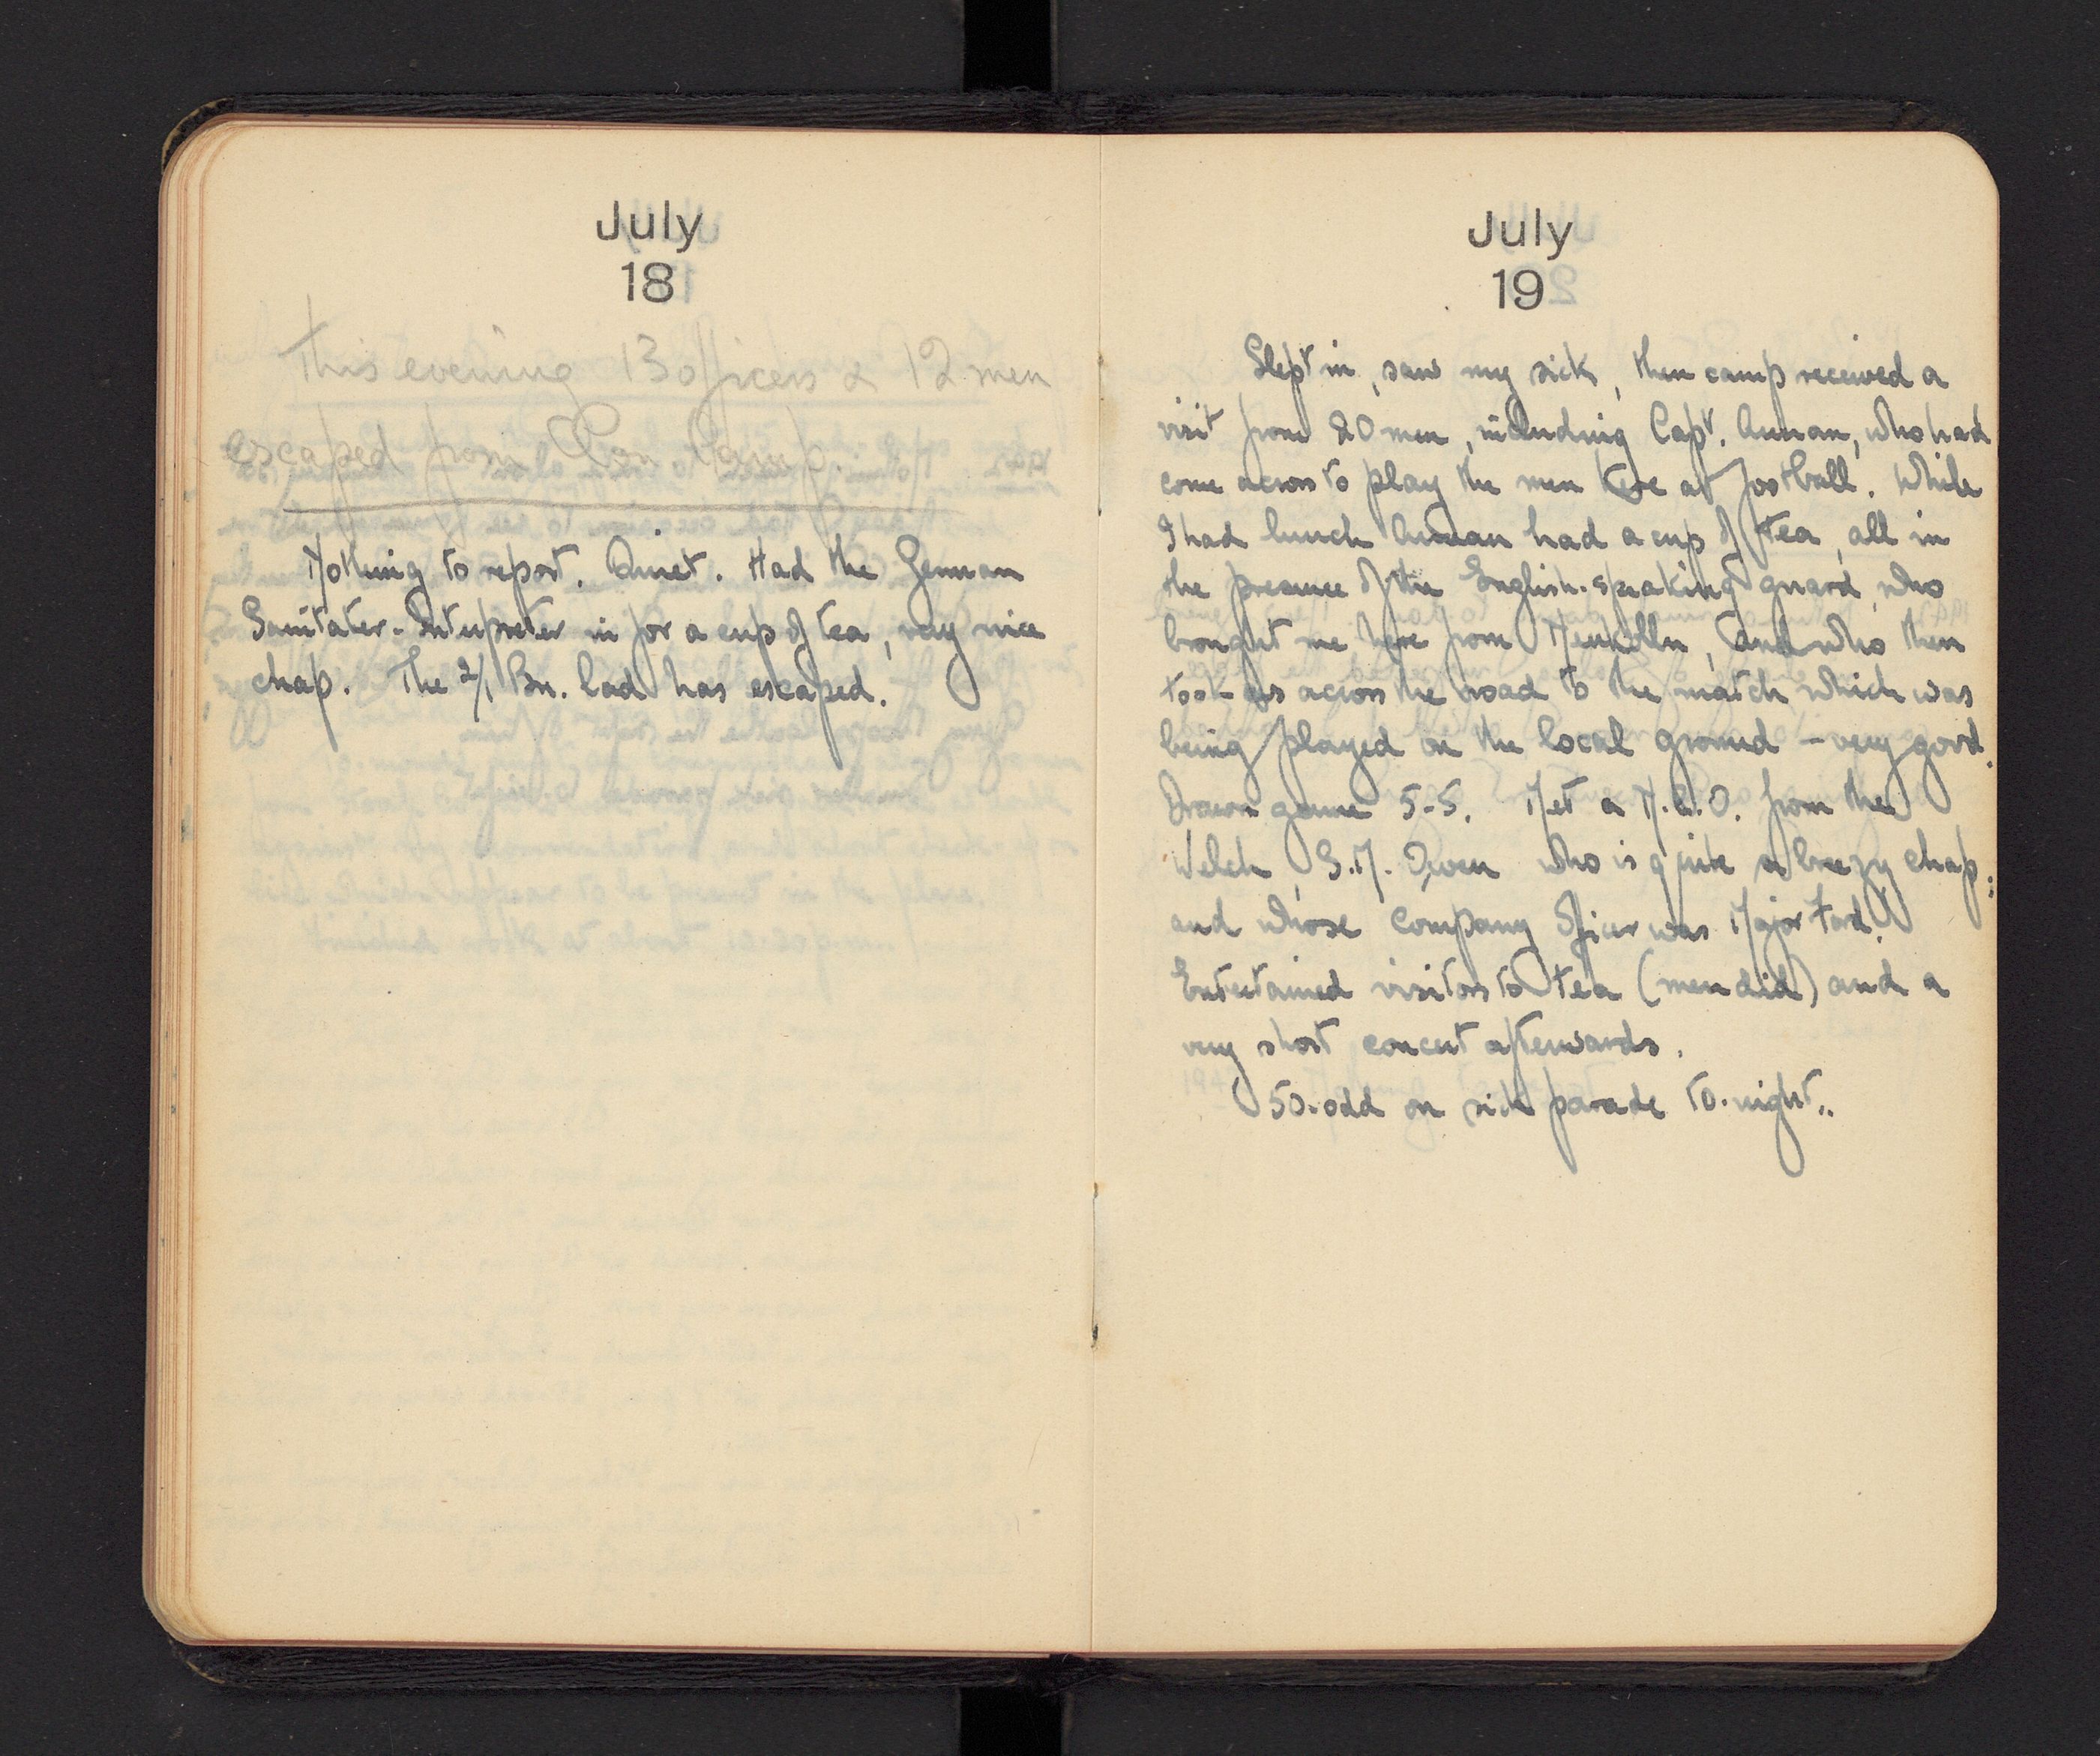 July
18
This evening 13 officers & 12 men
escaped from Camp.
Nothing to report. Quiet. Had the German
Sanitater-Interpreter in for a cup of tea, very nice
chap. The 2/1 Bn. lad has escaped.
July
19
Slept in, saw my sick, then camp received a
visit from 20 men, including Capt. who had
come across to play the men here at football. While
I had lunch had a cup of tea, all in
the presence of the English-speaking guard, who
brought me here from, and who then
took us across the road to the match which was
being played on the local ground - very good.
Drawn game 5-5. Met a N.C.O. from the
Welch, S.M. Owen who is quite a breezy chap,
and whose company officer was Major Ford.
Entertained visitors to tea (men did) and a
very short concert afterwards.
50-odd on sick parade to-night..